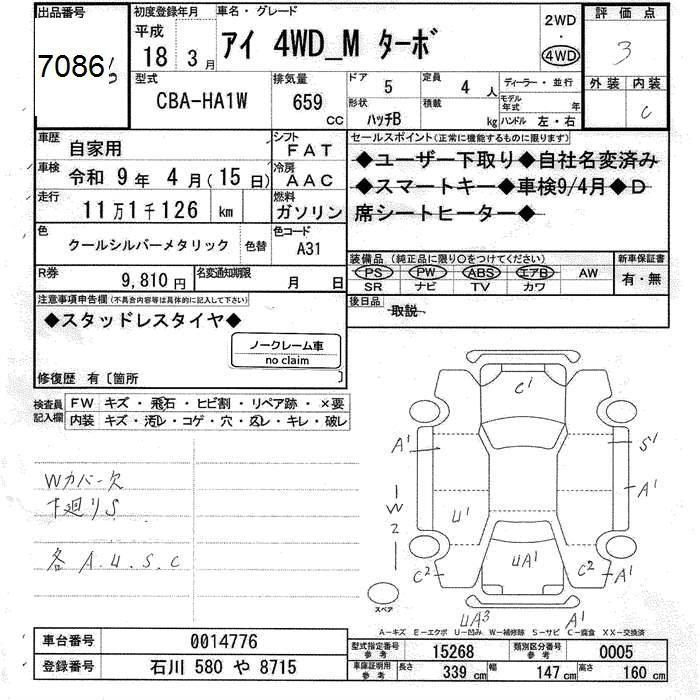 出品番号
7086
初度登録年月
平成
18 年 3 月
車名・グレード
アイ 4WD_M ターボ
2WD
・
4WD
評価点
3
外装 内装
C
型式
CBA-HA1W
排気量
659 CC
ドア 5
形状 ハッチB
定員 4 人
積載 kg
ディーラー・並行
モデル年式 年
ハンドル 左・右
車歴 自家用
シフト FAT
車検 令和 9 年 4 月 (15 日)
冷房 AAC
走行 11 万 1 千 126 km
燃料 ガソリン
色 クールシルバーメタリック 色替
色コード A31
R券 9,810 円
名変通知期限 月 日
セールスポイント(正常に機能するものに限ります)
◆ユーザー下取り◆自社名変済み
◆スマートキー◆車検9/4月◆D
席シートヒーター◆
装備品 (純正品に限り○をつけてください)
PS PW ABS エアB AW
SR ナビ TV カワ
新車保証書
有・無
後日品 取説
注意事項申告欄 (不具合内容等は具体的に記入して下さい)
◆スタッドレスタイヤ◆
ノークレーム車
no claim
修復歴 有〔箇所 〕
検査員記入欄
FW キズ・飛石・ヒビ割・リペア跡・×要
内装 キズ・汚レ・コゲ・穴・スレ・キレ・破レ
Wカバー欠
下廻りS
各 A.U.S.C
C1
A1
S1
A1
W
2
U1
UA1
C2
C2
A1
スペア
UA3
A1
A-キズ E-エクボ U-凹み W-補修跡 S-サビ C-腐食 XX-交換済
車台番号 0014776
登録番号 石川 580 や 8715
型式指定番号 参考 15268
類別区分番号 参考 0005
車庫証明用 参考 長さ 339 cm 幅 147 cm 高さ 160 cm